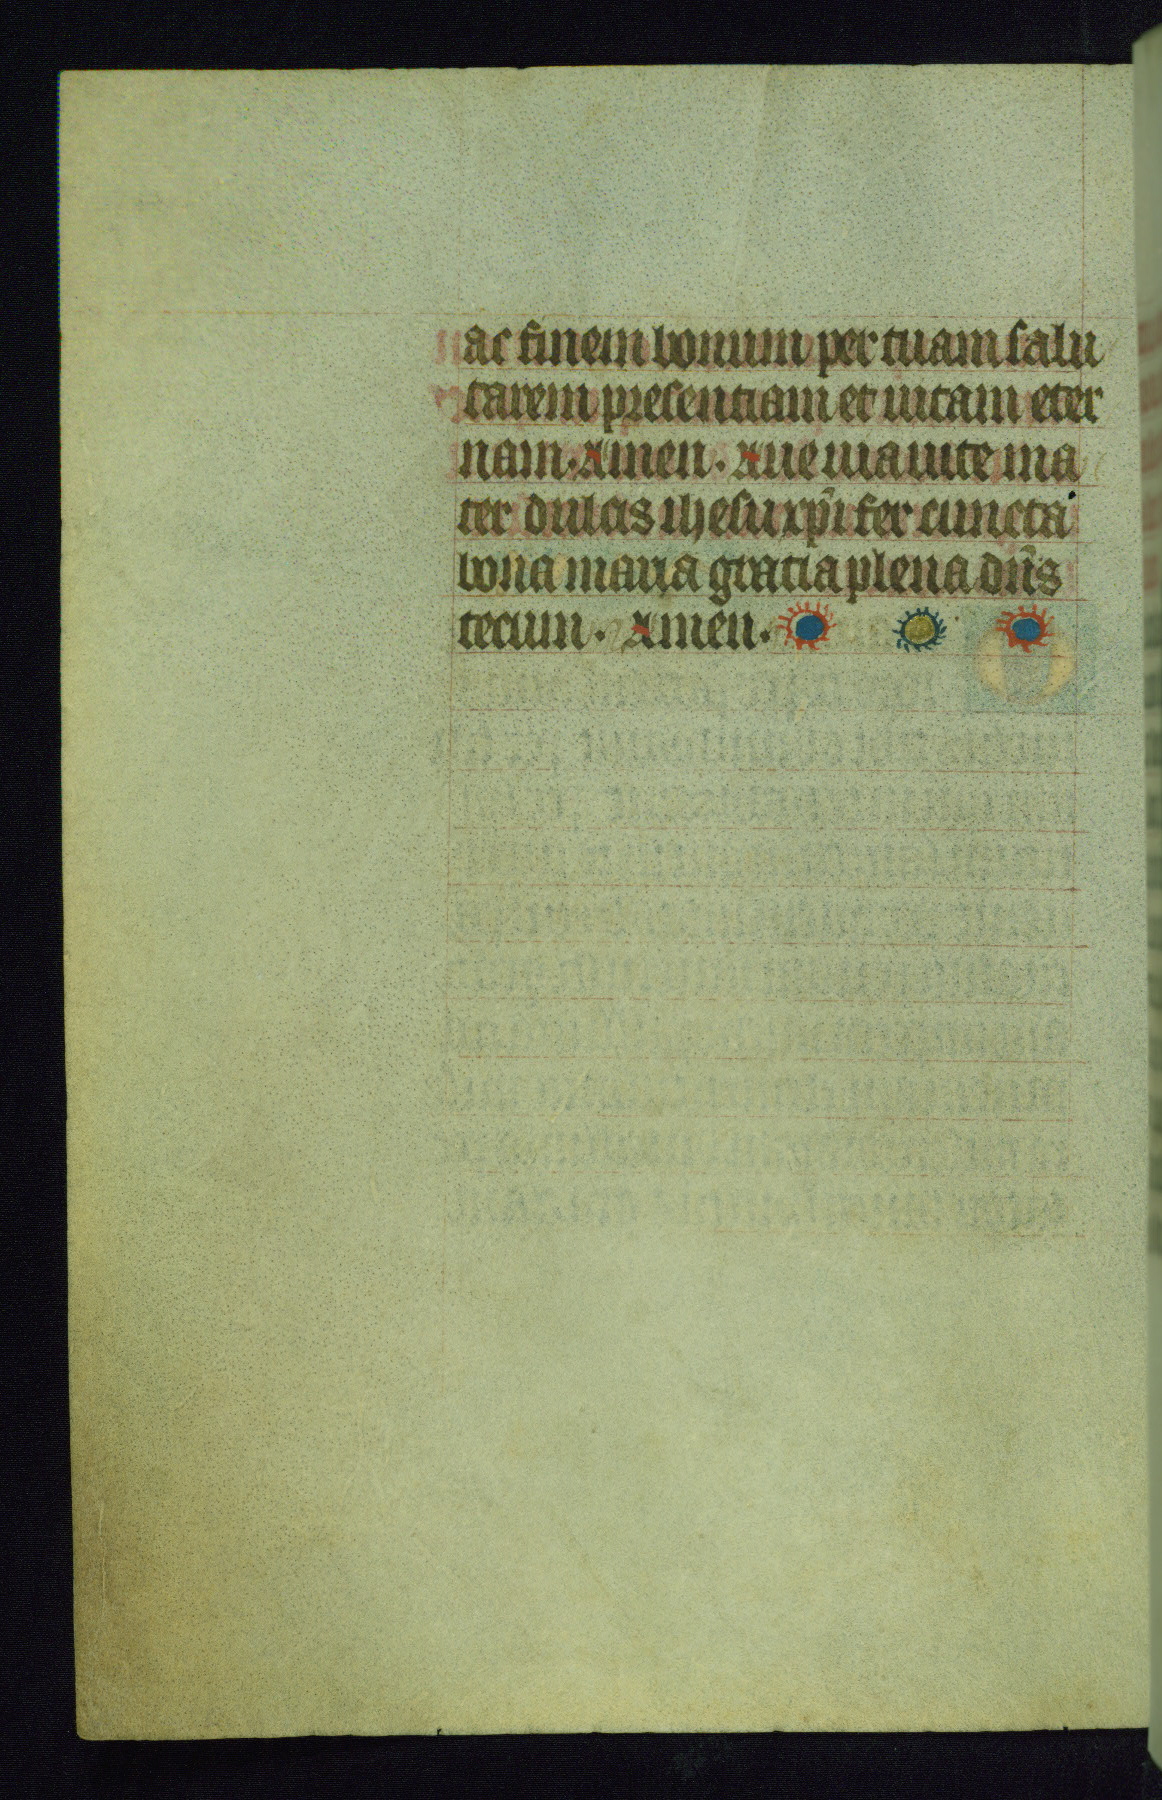 ac finem bonum per tuam salu
tarem presentiam et uitam eter
nam. Amen. Aue uia uite ma
ter dulcis ihesu xp̄i fer cuncta
bona maria gratia plena dn̄s
tecum. Amen.